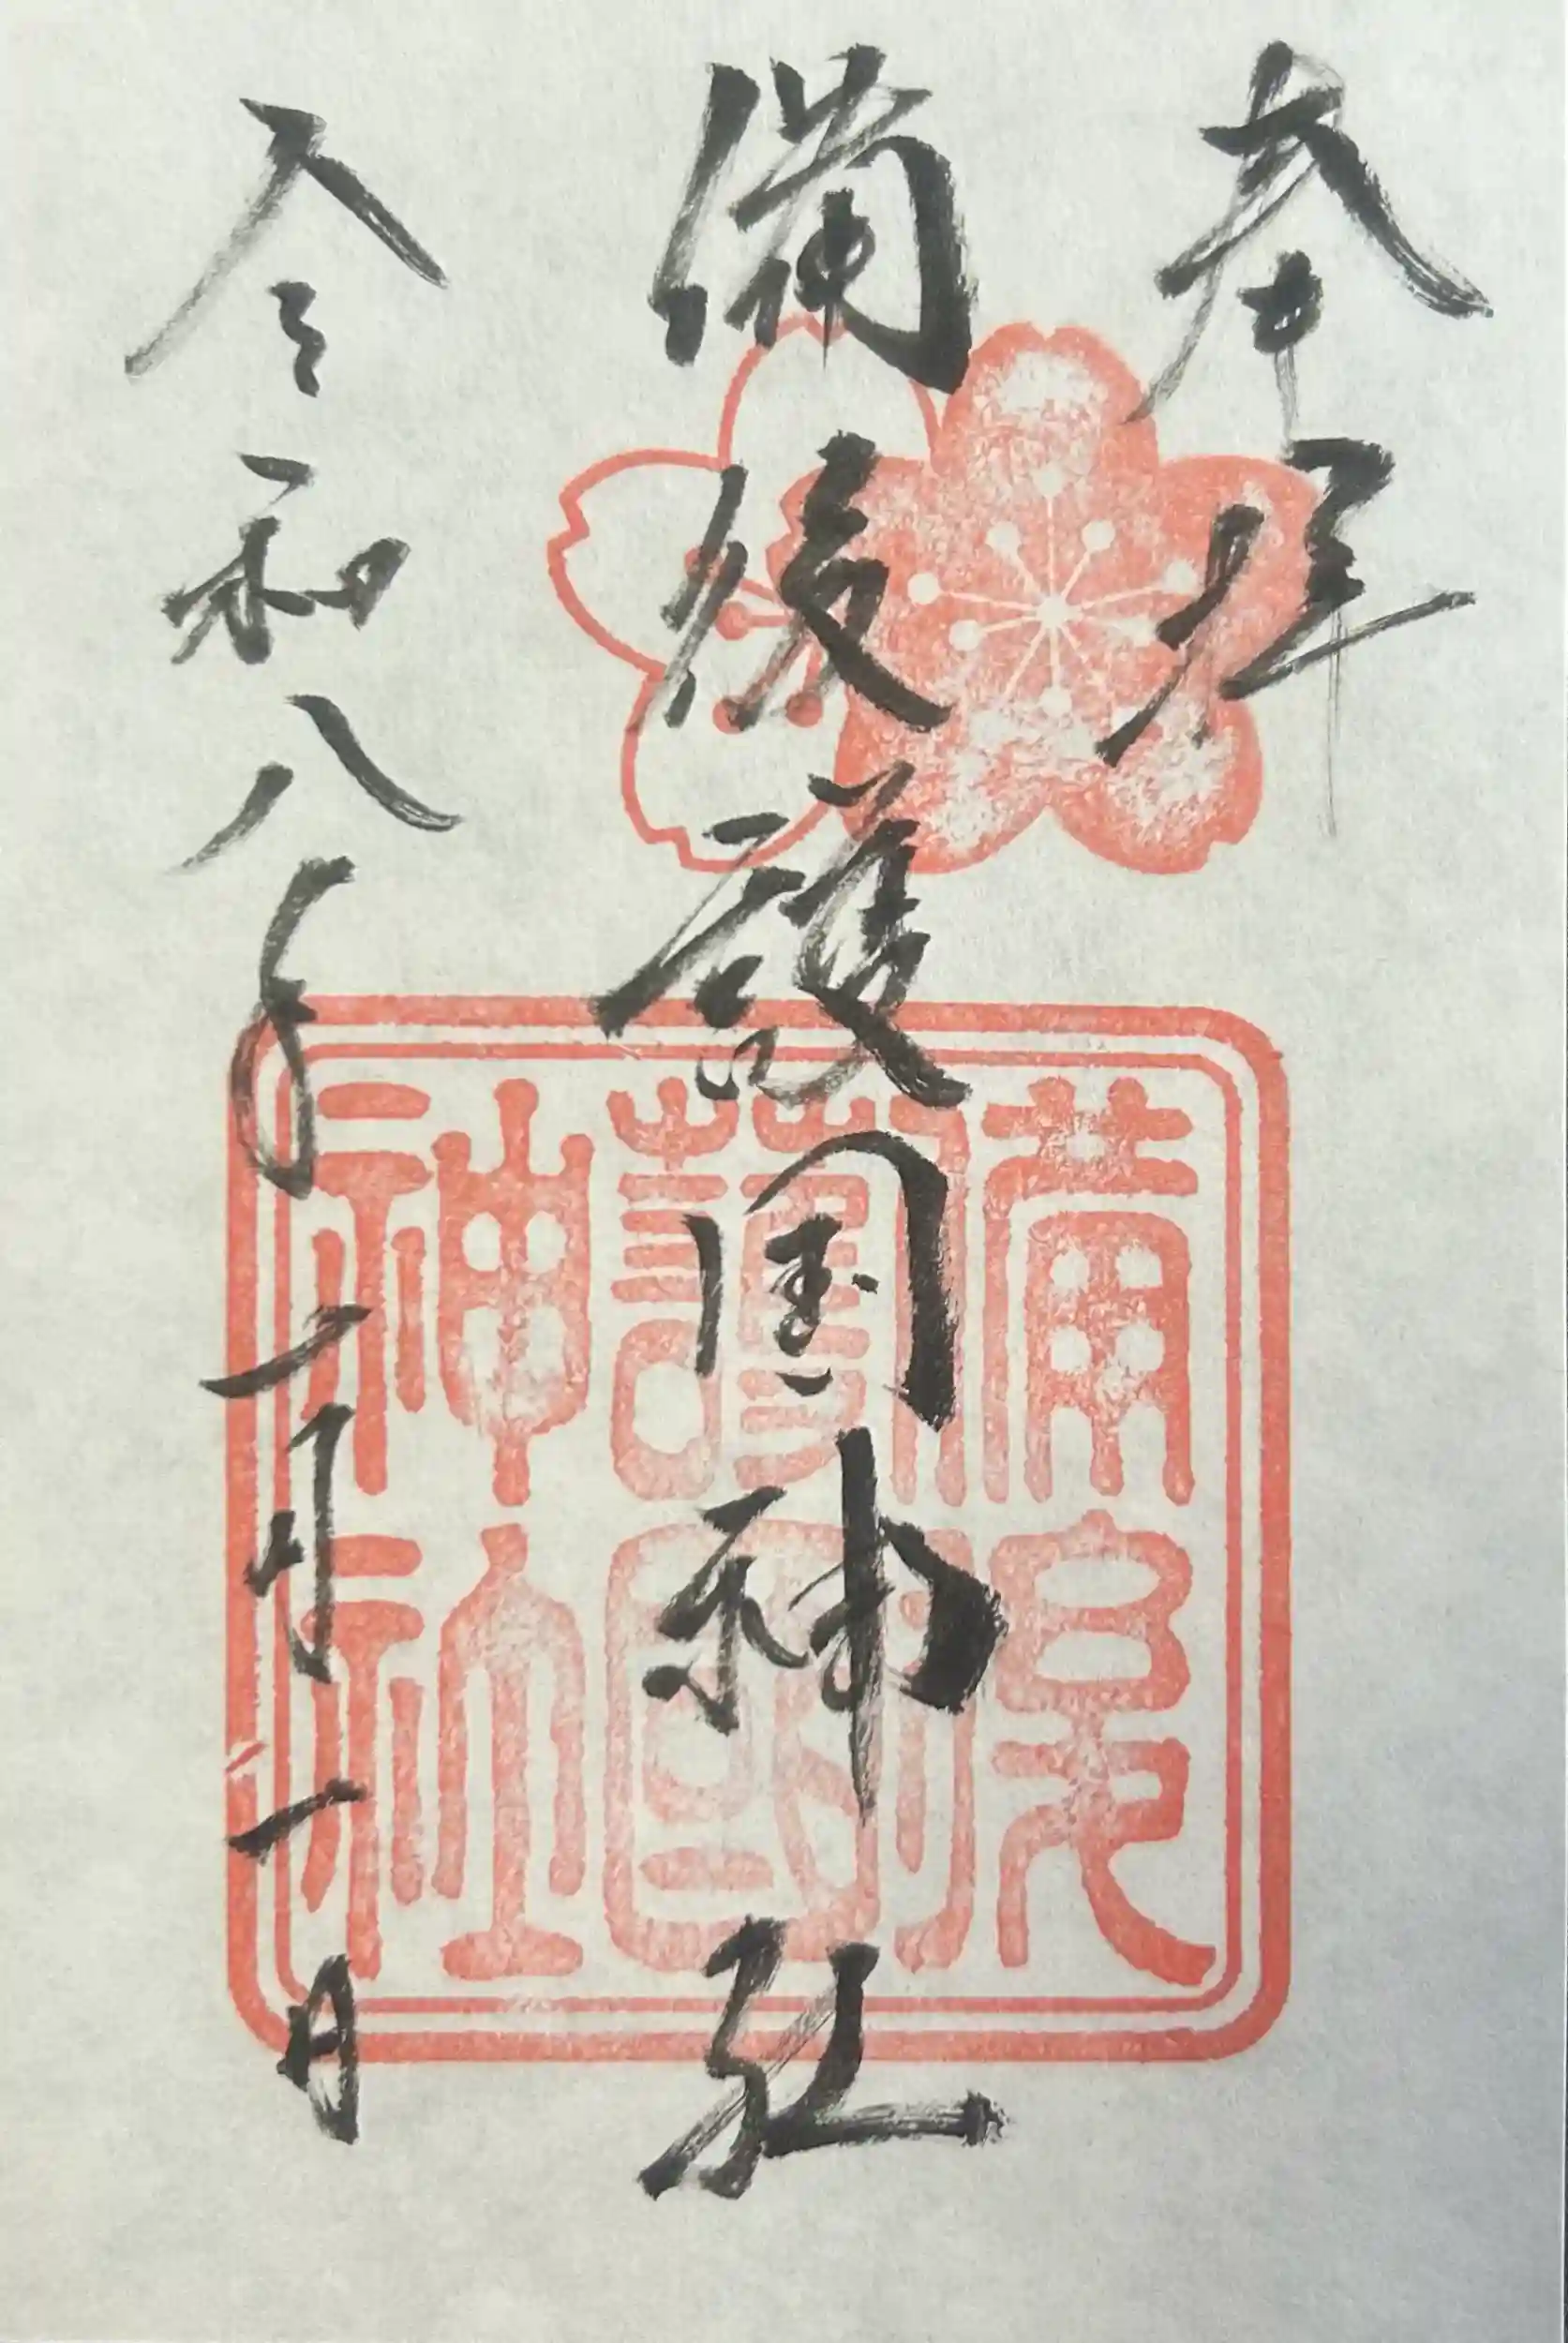 奉拝
備後護国神社
令和八年一月一日
備後
護國
神社